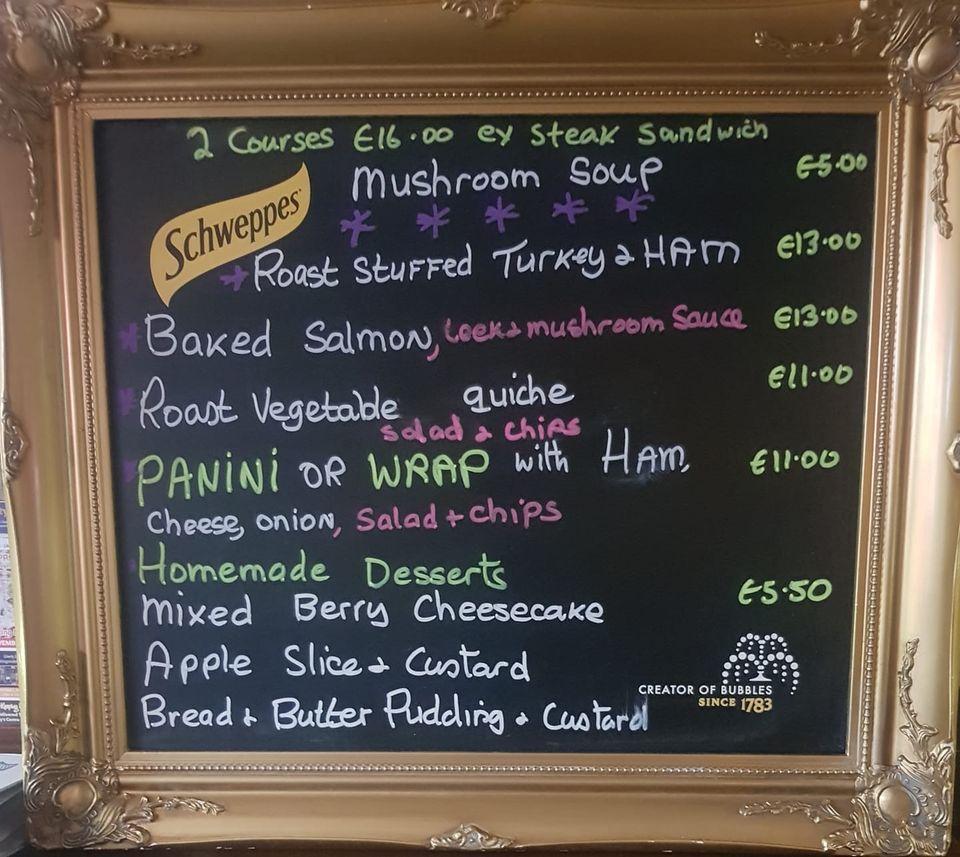 2 Courses €16.00 ex Steak Sandwich
Schweppes
Mushroom Soup €5.00
* * * * *
* Roast Stuffed Turkey & HAM €13.00
* Baked Salmon, Leek & mushroom Sauce €13.00
* Roast Vegetable quiche €11.00
Salad & chips
* PANINI OR WRAP with HAM, €11.00
Cheese, onion, Salad + chips
Homemade Desserts
mixed Berry Cheesecake €5.50
Apple Slice & Custard
Bread & Butter Pudding & Custard
CREATOR OF BUBBLES
SINCE 1783